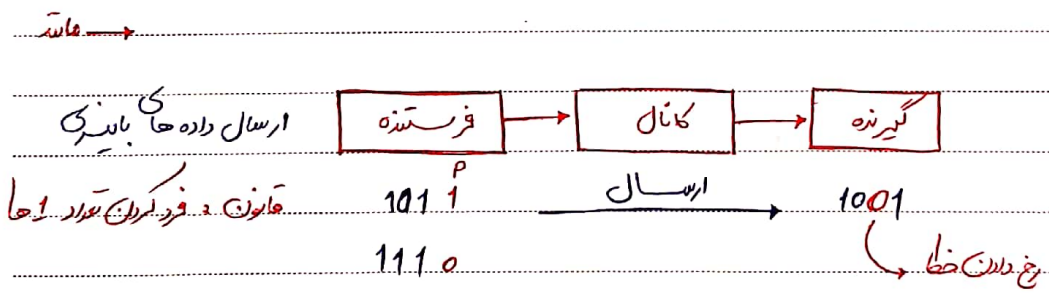 مانند →
ارسال داده های باینری
فرستنده → کانال → گیرنده
P
قانون : فرد کردن تعداد 1ها
1011 ارسال 1001
1110
رخ دادن خطا